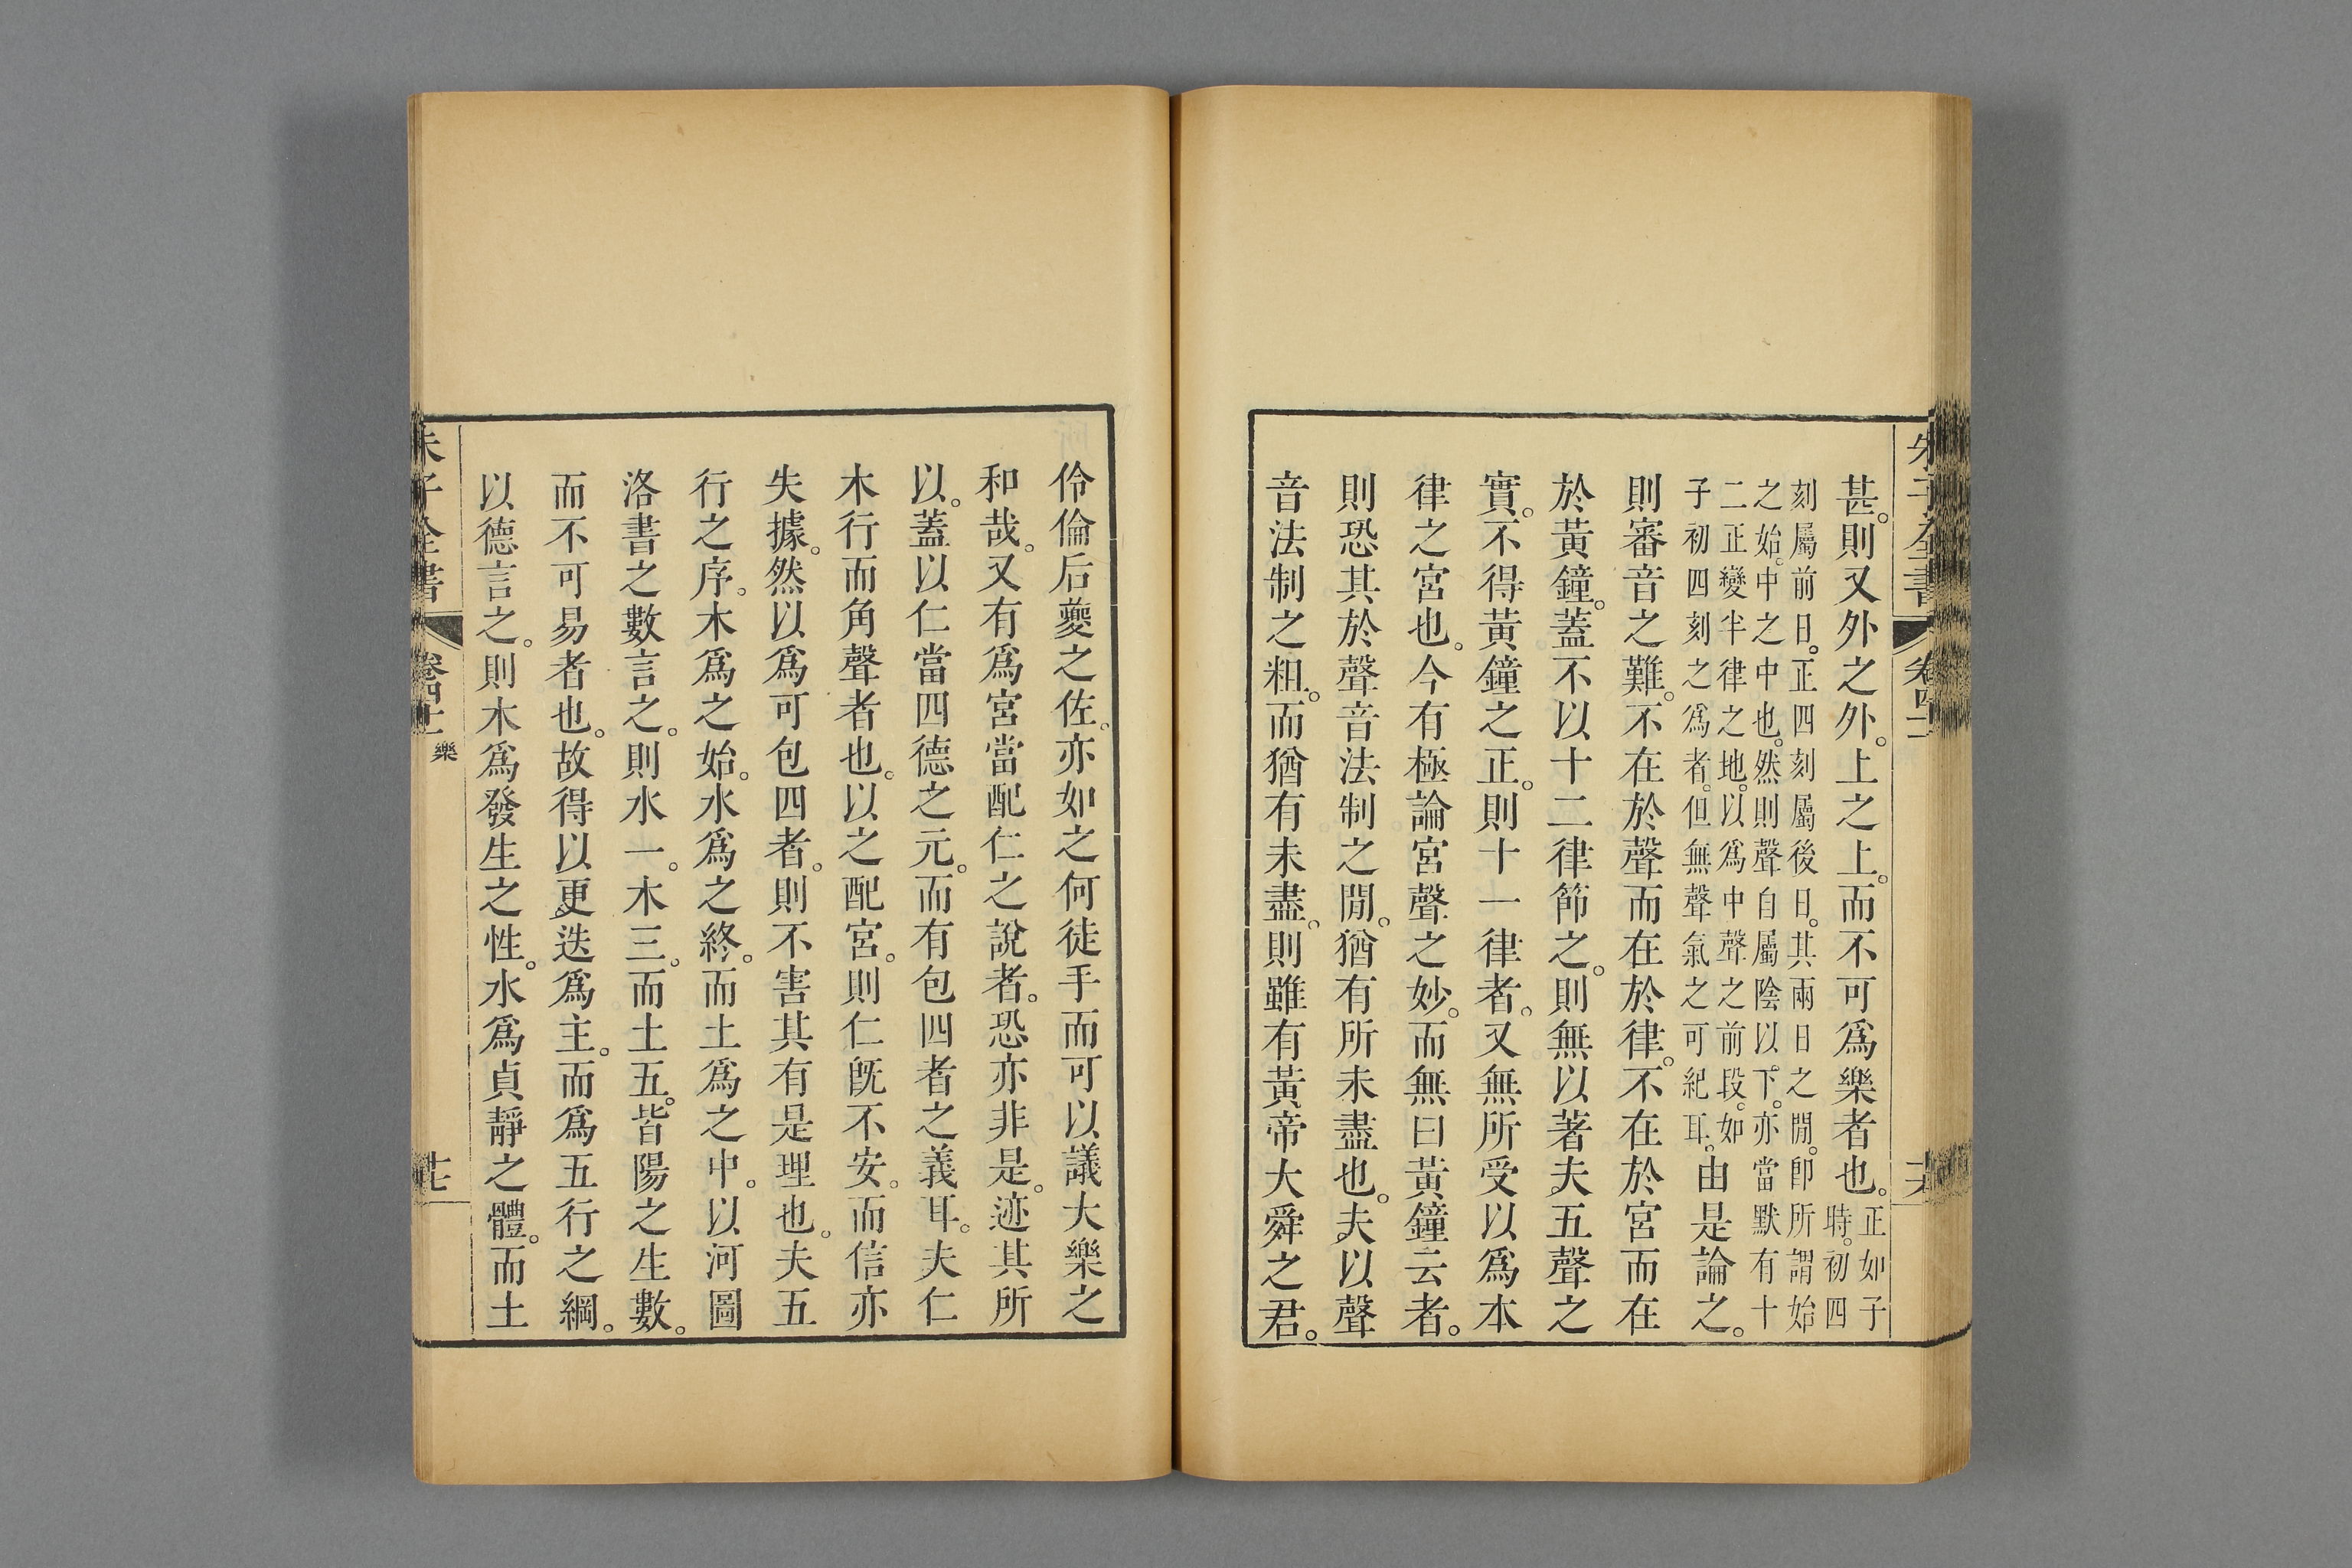 朱子全書 卷四十一 十六
甚。則又外之外。上之上。而不可爲樂者也。
正如子
時。初四
刻屬前日。正四刻屬後日。其兩日之閒。卽所謂始
之始。中之中也。然則聲自屬陰以下。亦當默有十
二正變半律之地。以爲中聲之前段。如
子初四刻之爲者。但無聲氣之可紀耳。
由是論之。
則審音之難。不在於聲而在於律。不在於宮而在
於黃鐘。蓋不以十二律節之。則無以著夫五聲之
實。不得黃鐘之正。則十一律者。又無所受以爲本
律之宮也。今有極論宮聲之妙。而無曰黃鐘云者。
則恐其於聲音法制之閒。猶有所未盡也。夫以聲
音法制之粗。而猶有未盡。則雖有黃帝大舜之君。
伶倫后夔之佐。亦如之何徒手而可以議大樂之
和哉。又有爲宮當配仁之說者。恐亦非是。迹其所
以。蓋以仁當四德之元。而有包四者之義耳。夫仁
木行而角聲者也。以之配宮。則仁旣不安。而信亦
失據。然以爲可包四者。則不害其有是理也。夫五
行之序。木爲之始。水爲之終。而土爲之中。以河圖
洛書之數言之。則水一。木三。而土五。皆陽之生數。
而不可易者也。故得以更迭爲主。而爲五行之綱。
以德言之。則木爲發生之性。水爲貞靜之體。而土
朱子全書 卷四十一 樂 十七